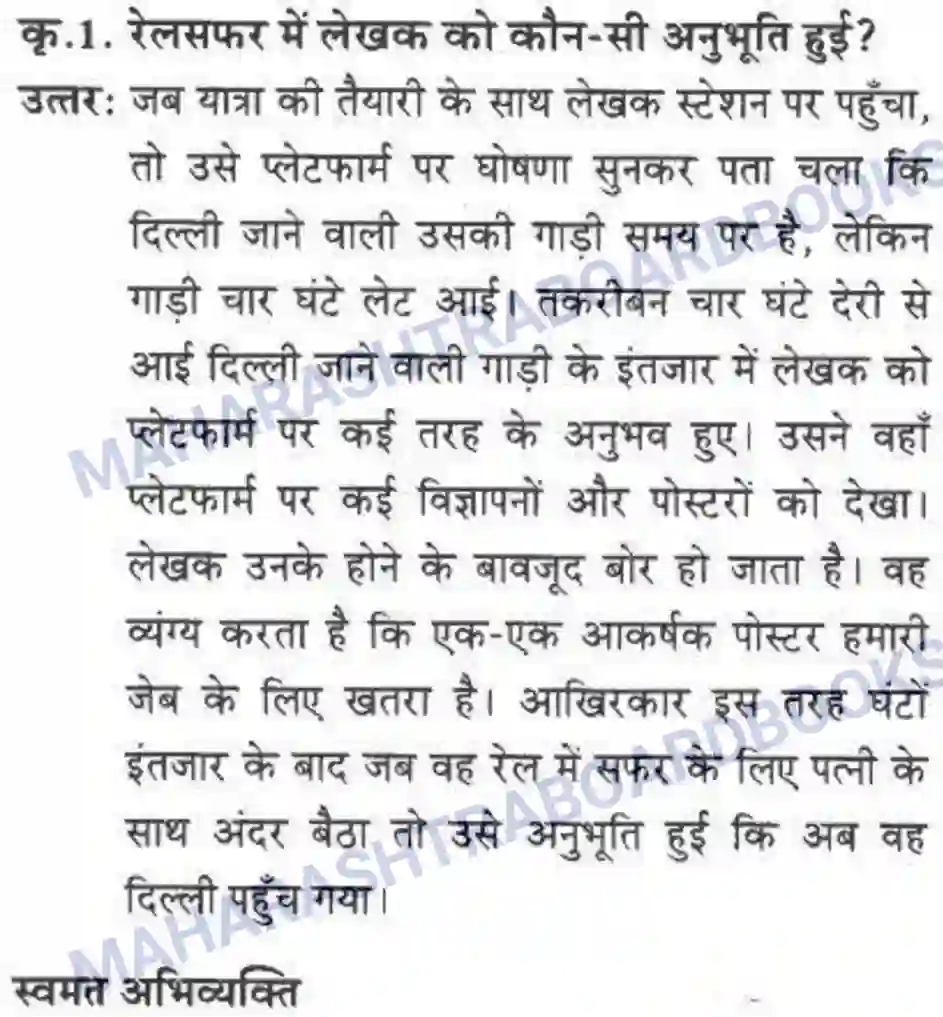 कृ.1. रेलसफर में लेखक को कौन-सी अनुभूति हुई?
उत्तर: जब यात्रा की तैयारी के साथ लेखक स्टेशन पर पहुँचा,
तो उसे प्लेटफार्म पर घोषणा सुनकर पता चला कि
दिल्ली जाने वाली उसकी गाड़ी समय पर है, लेकिन
गाड़ी चार घंटे लेट आई। तकरीबन चार घंटे देरी से
आई दिल्ली जाने वाली गाड़ी के इंतजार में लेखक को
प्लेटफार्म पर कई तरह के अनुभव हुए। उसने वहाँ
प्लेटफार्म पर कई विज्ञापनों और पोस्टरों को देखा।
लेखक उनके होने के बावजूद बोर हो जाता है। वह
व्यंग्य करता है कि एक-एक आकर्षक पोस्टर हमारी
जेब के लिए खतरा है। आखिरकार इस तरह घंटों
इंतजार के बाद जब वह रेल में सफर के लिए पत्नी के
साथ अंदर बैठा तो उसे अनुभूति हुई कि अब वह
दिल्ली पहुँच गया।
स्वमत अभिव्यक्ति
MAHARASHTRABOARDBOOKS
MAHARASHTRABOARDBOOKS